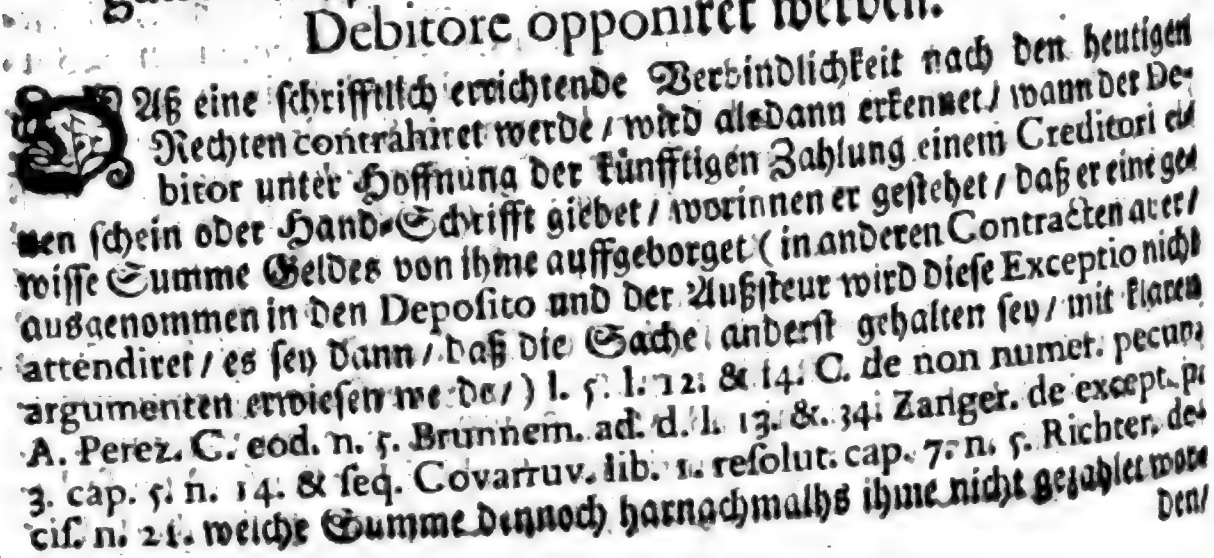 Debitore opponiret werden.
DAß eine schrifftlich errichtende Verbindlichkeit nach den heutigen
Rechten contrahiret werde / wird alsdann erkennet / wann der De-
bitor unter Hoffnung der künfftigen Zahlung einem Creditori ei-
nen schein oder Hand-Schrifft giebet / worinnen er gestehet / daß er eine ge-
wisse Summe Geldes von ihme auffgeborget ( in anderen Contracten aber /
ausgenommen in den Deposito und der Außsteur wird diese Exceptio nicht
attendiret / es sey dann / daß die Sache anderst gehalten sey / mit klaren
argumenten erwiesen werde / ) l. 5. l. 12. & 14. C. de non numer. pecun.
A. Perez. C. eod. n. 5. Brunnem. ad. d. l. 13. & 34. Zanger. de except. p.
3. cap. 5. n. 14. & seq. Covarruv. lib. 1. resolut. cap. 7. n. 5. Richter. de-
cis. n. 21. welche Summe dennoch harnachmalhs ihme nicht gezahlet wor-
den /